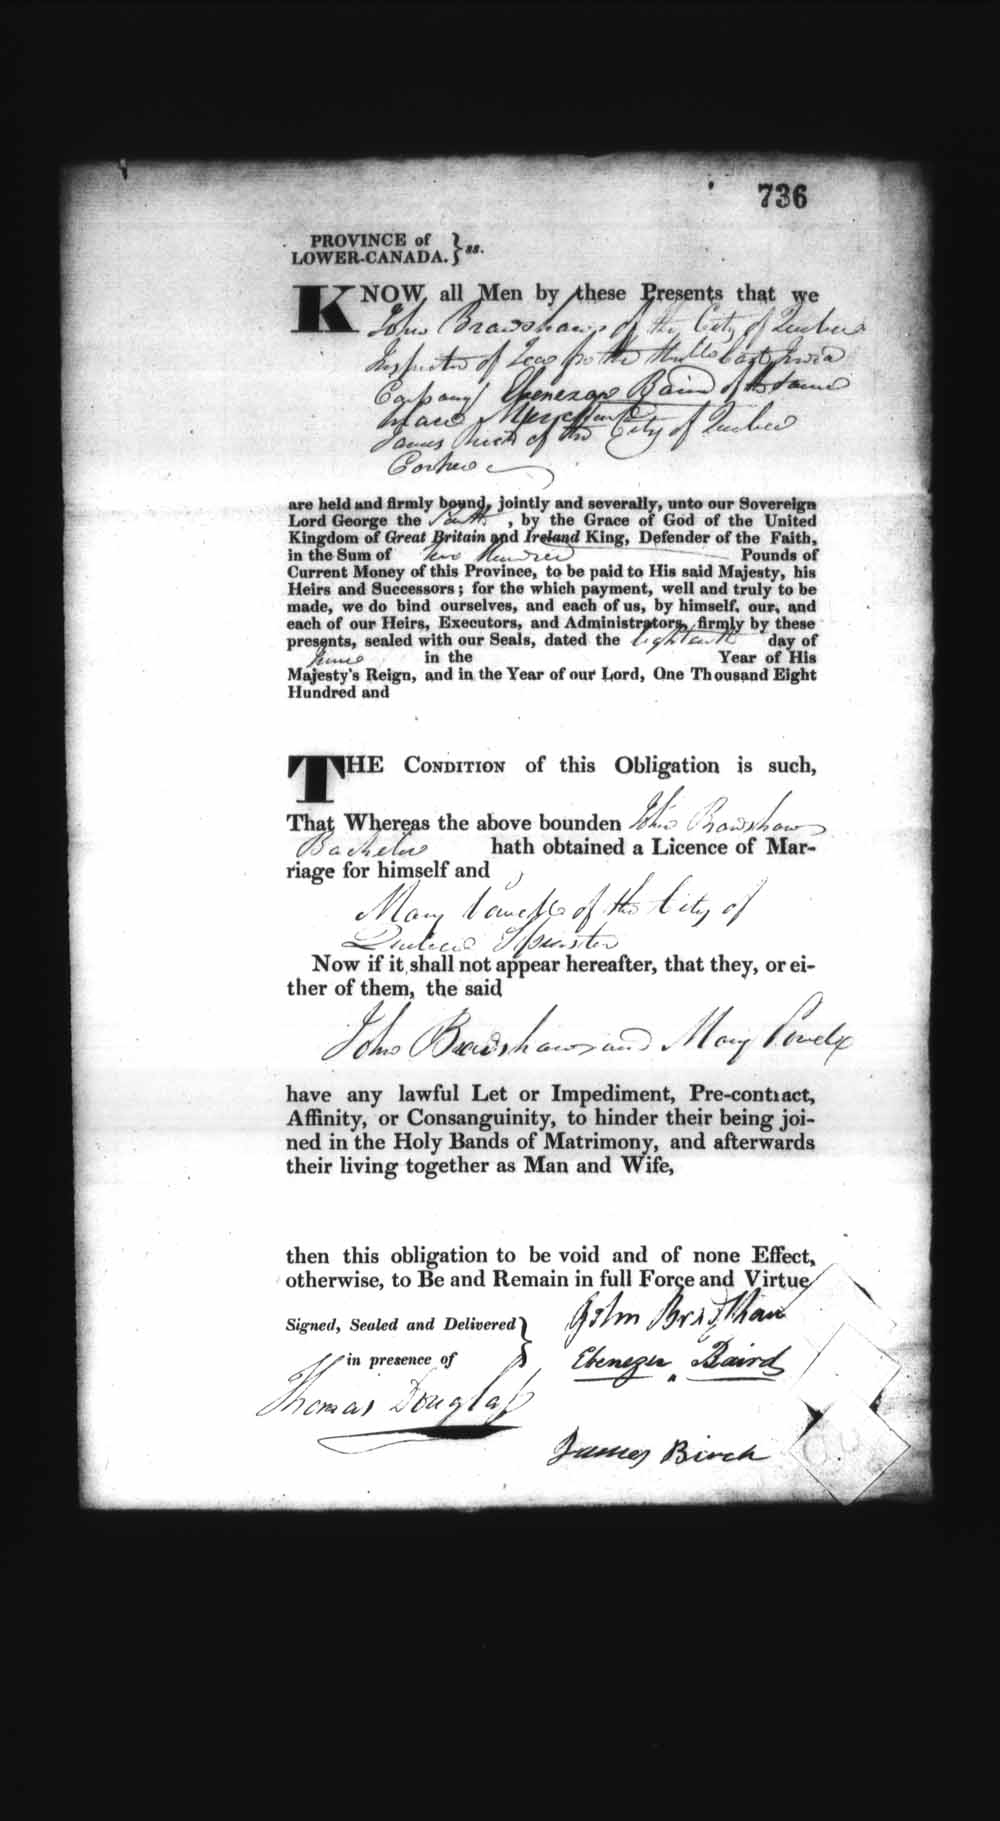 736
PROVINCE of
LOWER-CANADA. } ss.
KNOW all Men by these Presents that we
John Bradshaw of the City of Quebec
Inspector of Teas for the Honble East India
Company Ebenezer Baird of the same
place Merchant
James Birch of the City of Quebec
are held and firmly bound, jointly and severally, unto our Sovereign
Lord George the Fourth, by the Grace of God of the United
Kingdom of Great Britain and Ireland King, Defender of the Faith,
in the Sum of Two Hundred Pounds of
Current Money of this Province, to be paid to His said Majesty, his
Heirs and Successors; for the which payment, well and truly to be
made, we do bind ourselves, and each of us, by himself, our, and
each of our Heirs, Executors, and Administrators, firmly by these
presents, sealed with our Seals, dated the eighteenth day of
June in the Year of His
Majesty's Reign, and in the Year of our Lord, One Thousand Eight
Hundred and
THE CONDITION of this Obligation is such,
That Whereas the above bounden John Bradshaw
Bachelor hath obtained a Licence of Mar-
riage for himself and
Mary Powell of the City of
Quebec Spinster
Now if it shall not appear hereafter, that they, or ei-
ther of them, the said
John Bradshaw and Mary Powell
have any lawful Let or Impediment, Pre-contract,
Affinity, or Consanguinity, to hinder their being joi-
ned in the Holy Bands of Matrimony, and afterwards
their living together as Man and Wife,
then this obligation to be void and of none Effect,
otherwise, to Be and Remain in full Force and Virtue
Signed, Sealed and Delivered }
in presence of
John Bradshaw
Ebenezer Baird
Thomas Douglass
James Birch